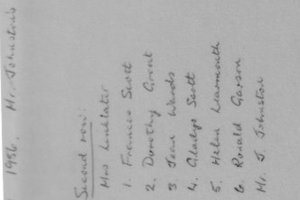 1956. Mr. Johnston's
Second row:
Mrs Linklater
1. Frances Scott
2. Dorothy Groat
3 Jean Wards
4. Gladys Scott
5. Helen Learmouth
6 Ronald Garson
Mr. J. Johnston